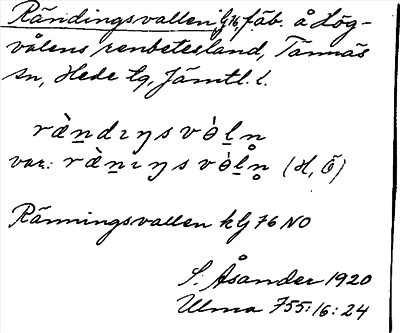 Rändingsvallen G 76, fäb. å Hög-
vålens renbetesland, Tännäs
sn, Hede tg, Jämtl. l.
rὲn̲dɩŋsvɵ̀l̲n
var: rὲn̲ɩŋsvɵ̀l̲n̥ (H, Ö)
Ränningsvallen k G 76 NO
S. Åsander 1920
Ulma 755:16:24